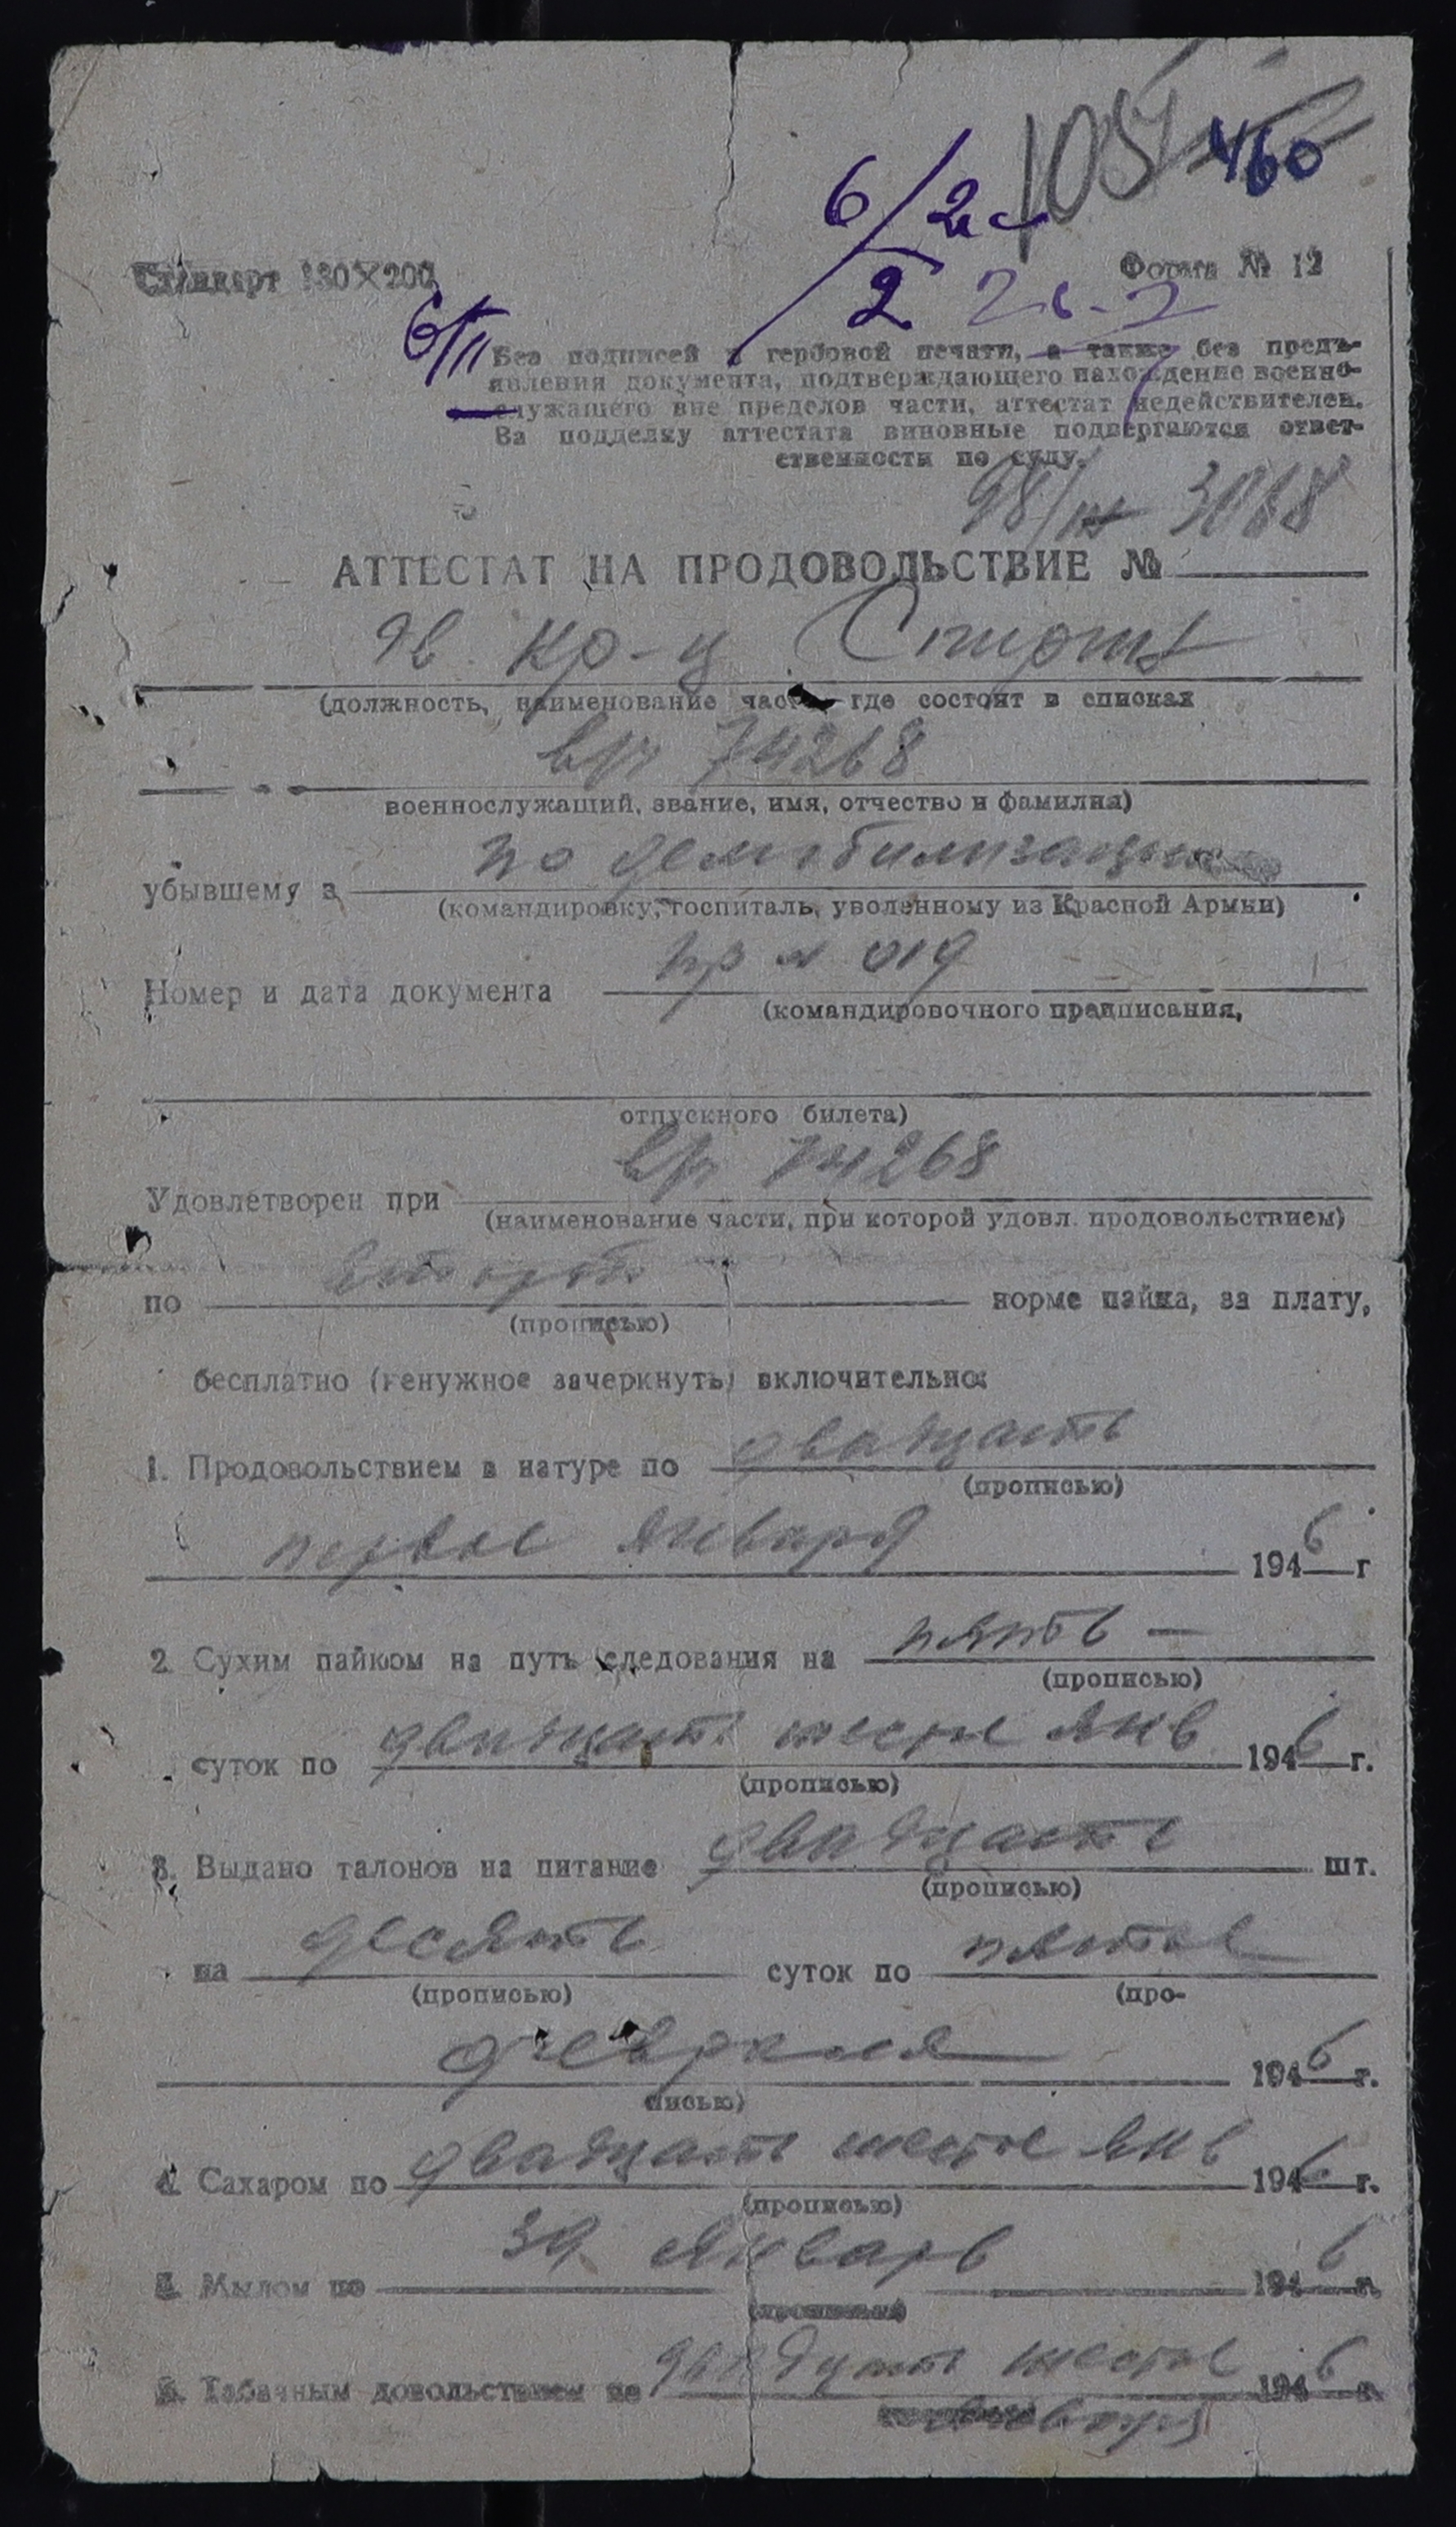 460
6/2
2
Стандарт 130×200
Форма № 12
6/II
Без подписей и гербовой печати, а также без предъ-
явления документа, подтверждающего нахождение военно-
служащего вне пределов части, аттестат недействителен.
За подделку аттестата виновные подвергаются ответ-
ственности по суду.
3068
АТТЕСТАТ НА ПРОДОВОЛЬСТВИЕ №
кр-ц
(должность, наименование части где состоят в списках
в/ч 74268
военнослужащий, звание, имя, отчество и фамилия)
по демобилизации
убывшему в
(командировку, госпиталь, уволенному из Красной Армии)
пр № 019
Номер и дата документа
(командировочного предписания,
отпускного билета)
в/ч 74268
Удовлетворен при
(наименование части, при которой удовл. продовольствием)
по норме пайка, за плату,
(прописью)
бесплатно (ненужное зачеркнуть) включительно:
1. Продовольствием в натуре по двадцать
(прописью)
первое января 1946 г
2. Сухим пайком на путь следования на пять —
(прописью)
суток по двадцать шестое янв 1946 г.
(прописью)
3. Выдано талонов на питание двадцать шт.
(прописью)
на десять суток по пятое
(прописью) (про-
февраля 1946 г.
писью)
4. Сахаром по двадцать шестое янв 1946 г.
(прописью)
Мылом по январь 1946 г.
(прописью)
Табачным довольствием по двадцать шестое 1946 г.
января